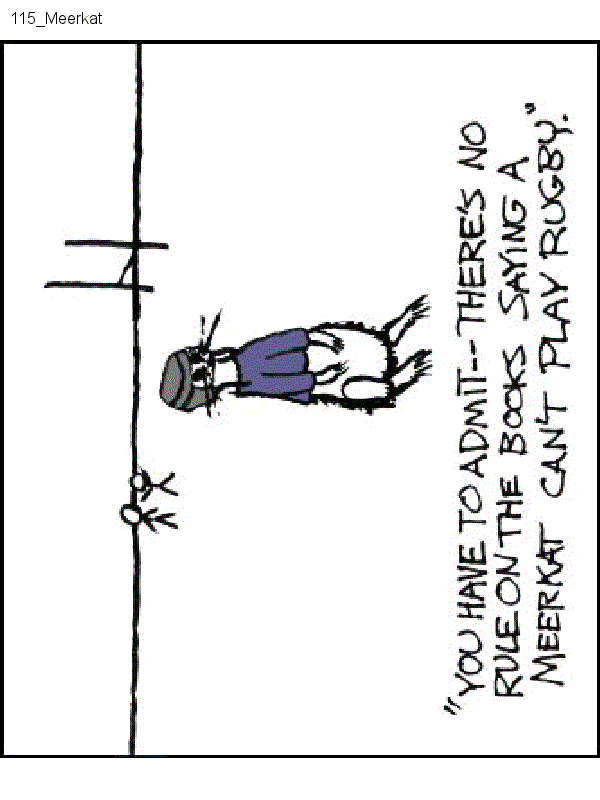 115_Meerkat
"YOU HAVE TO ADMIT--THERE'S NO
RULE ON THE BOOKS SAYING A
MEERKAT CAN'T PLAY RUGBY."